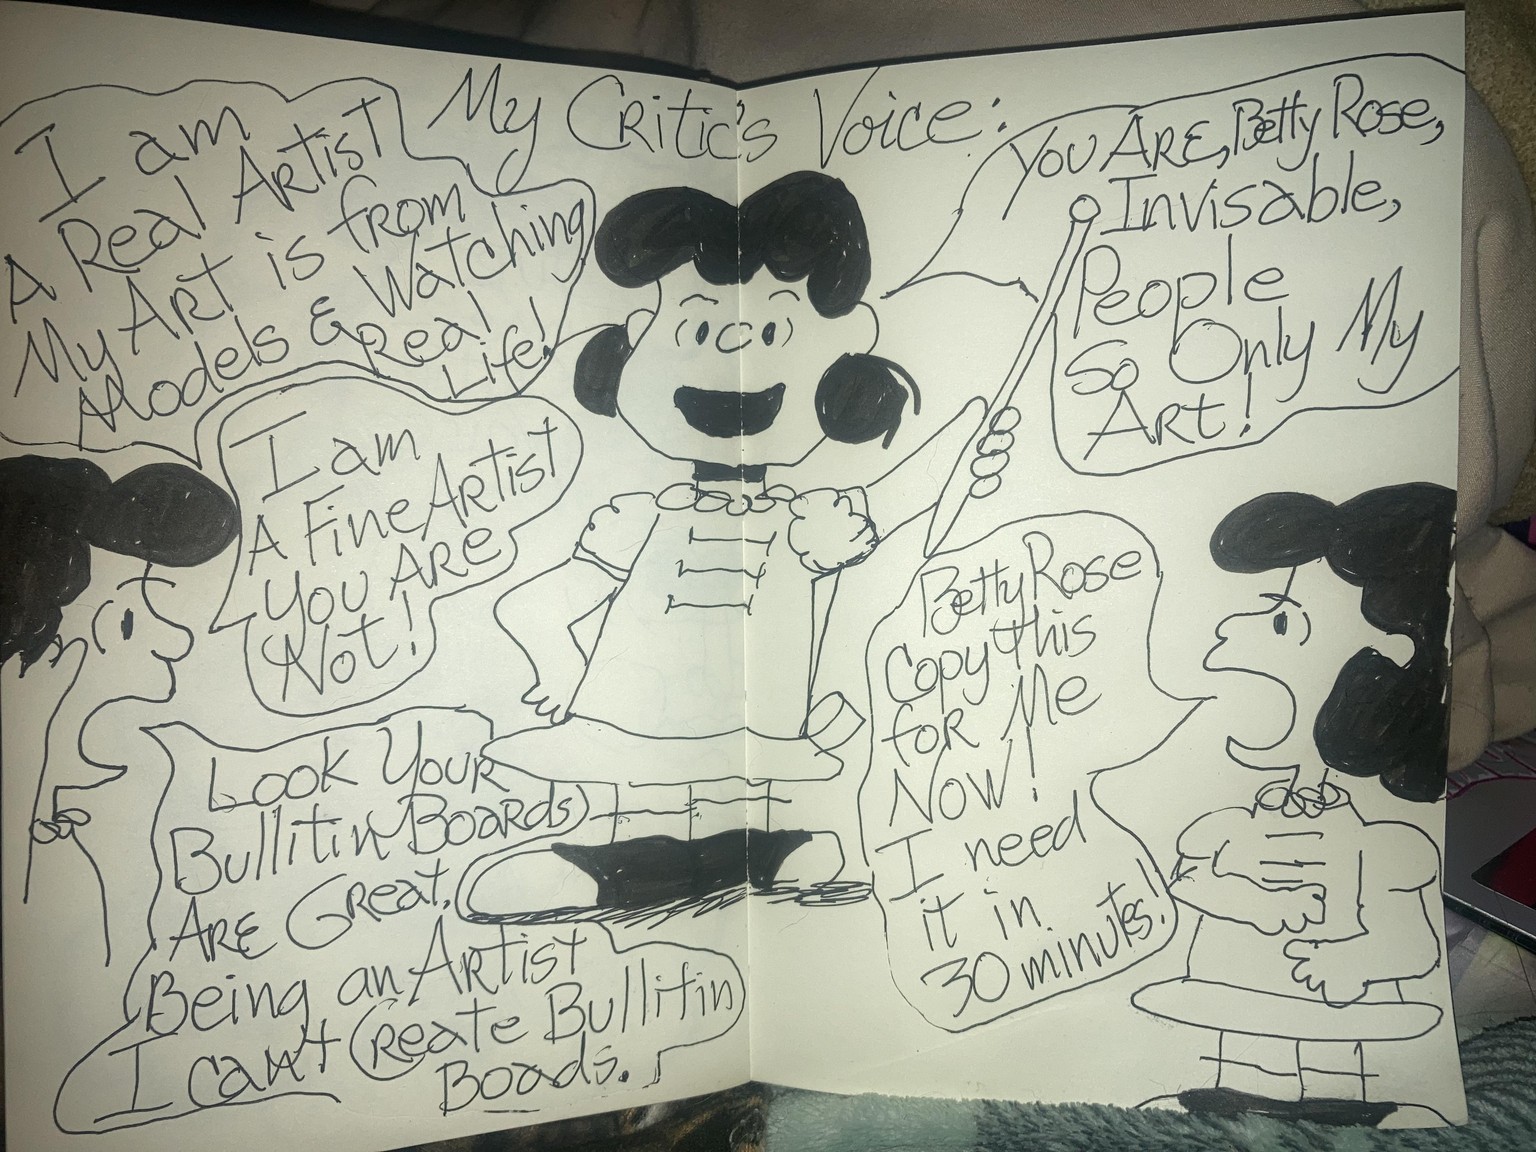 My Critic's Voice:
I am
A Real Artist
My Art is from
Models & Watching
Real
Life!
You Are, Betty Rose,
Invisable,
People
So Only My
Art!
I am
A Fine Artist
You Are
Not!
Betty Rose
Copy this
for Me
Now!
I need
it in
30 minutes!
Look Your
Bullitin Boards)
Are Great.
Being an Artist
I can't Create Bullitin
Boads.